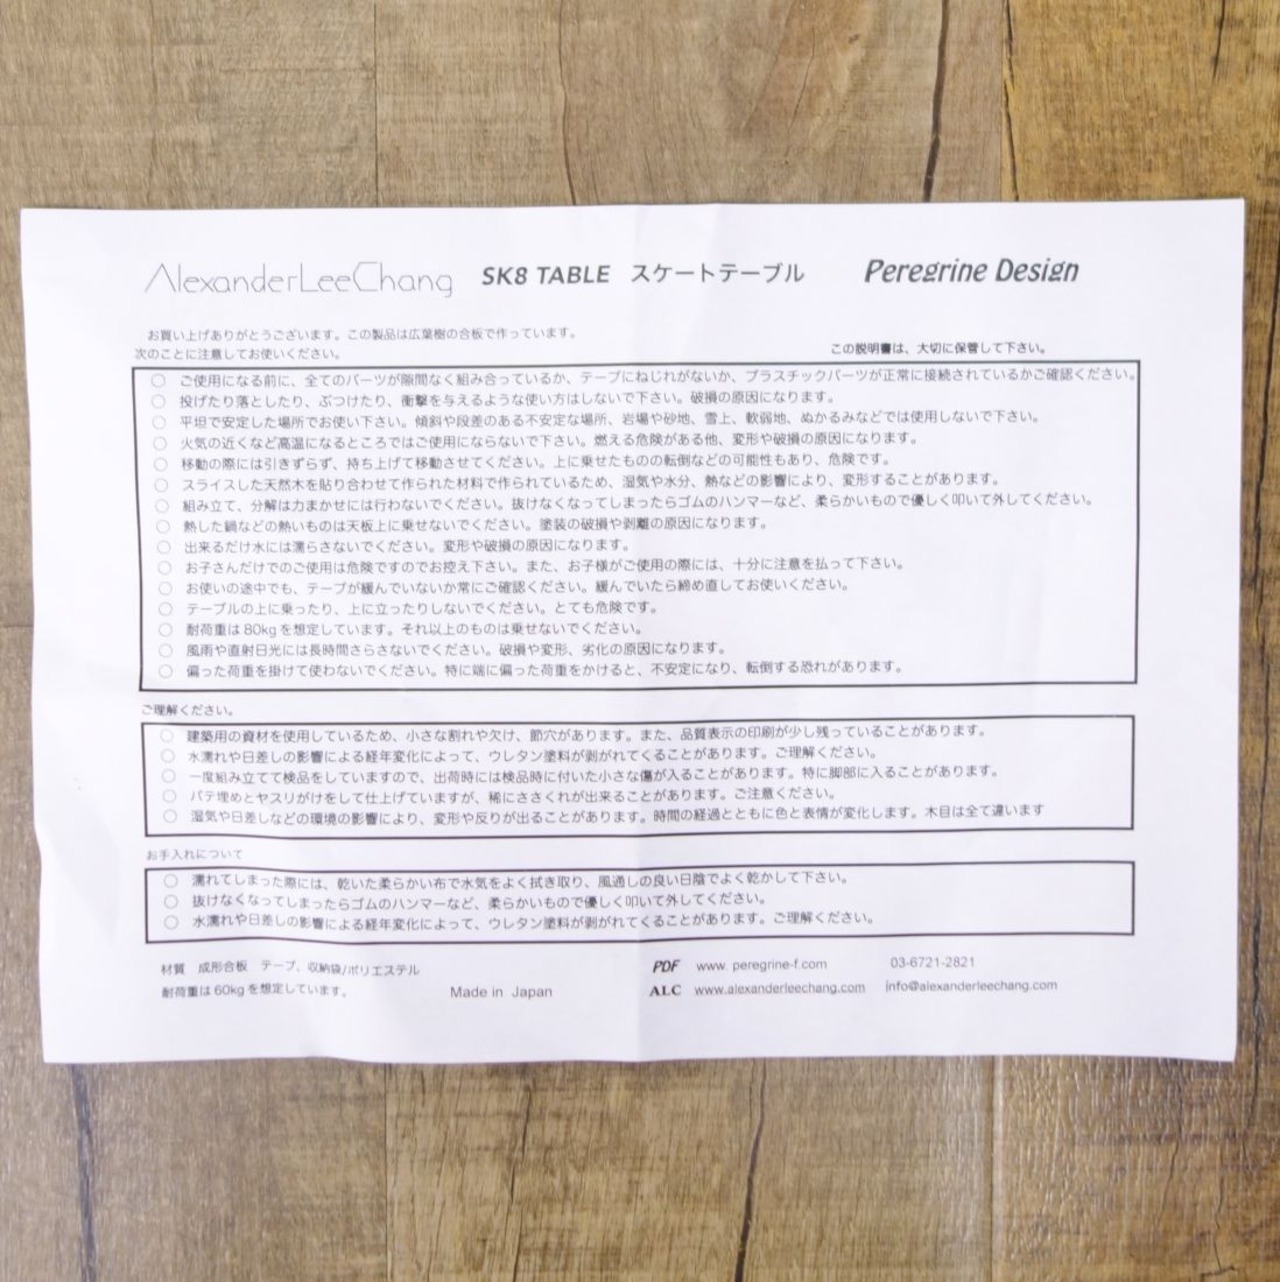 AlexanderLeeChang SK8 TABLE スケートテーブル Peregrine Design
お買い上げありがとうございます。この製品は広葉樹の合板で作っています。
次のことに注意してお使いください。 この説明書は、大切に保管して下さい。
○ ご使用になる前に、全てのパーツが隙間なく組み合っているか、テープにねじれがないか、プラスチックパーツが正常に接続されているかご確認ください。
○ 投げたり落としたり、ぶつけたり、衝撃を与えるような使い方はしないで下さい。破損の原因になります。
○ 平坦で安定した場所でお使い下さい。傾斜や段差のある不安定な場所、岩場や砂地、雪上、軟弱地、ぬかるみなどでは使用しないで下さい。
○ 火気の近くなど高温になるところではご使用にならないで下さい。燃える危険がある他、変形や破損の原因になります。
○ 移動の際には引きずらず、持ち上げて移動させてください。上に乗せたものの転倒などの可能性もあり、危険です。
○ スライスした天然木を貼り合わせて作られた材料で作られているため、湿気や水分、熱などの影響により、変形することがあります。
○ 組み立て、分解は力まかせには行わないでください。抜けなくなってしまったらゴムのハンマーなど、柔らかいもので優しく叩いて外してください。
○ 熱した鍋などの熱いものは天板上に乗せないでください。塗装の破損や剥離の原因になります。
○ 出来るだけ水には濡らさないでください。変形や破損の原因になります。
○ お子さんだけでのご使用は危険ですのでお控え下さい。また、お子様がご使用の際には、十分に注意を払って下さい。
○ お使いの途中でも、テープが緩んでいないか常にご確認ください。緩んでいたら締め直してお使いください。
○ テーブルの上に乗ったり、上に立ったりしないでください。とても危険です。
○ 耐荷重は80kgを想定しています。それ以上のものは乗せないでください。
○ 風雨や直射日光には長時間さらさないでください。破損や変形、劣化の原因になります。
○ 偏った荷重を掛けて使わないでください。特に端に偏った荷重をかけると、不安定になり、転倒する恐れがあります。
ご理解ください。
○ 建築用の資材を使用しているため、小さな割れや欠け、節穴があります。また、品質表示の印刷が少し残っていることがあります。
○ 水濡れや日差しの影響による経年変化によって、ウレタン塗料が剥がれてくることがあります。ご理解ください。
○ 一度組み立てて検品をしていますので、出荷時には検品時に付いた小さな傷が入ることがあります。特に脚部に入ることがあります。
○ パテ埋めとヤスリがけをして仕上げていますが、稀にささくれが出来ることがあります。ご注意ください。
○ 湿気や日差しなどの環境の影響により、変形や反りが出ることがあります。時間の経過とともに色と表情が変化します。木目は全て違います
お手入れについて
○ 濡れてしまった際には、乾いた柔らかい布で水気をよく拭き取り、風通しの良い日陰でよく乾かして下さい。
○ 抜けなくなってしまったらゴムのハンマーなど、柔らかいもので優しく叩いて外してください。
○ 水濡れや日差しの影響による経年変化によって、ウレタン塗料が剥がれてくることがあります。ご理解ください。
材質 成形合板 テープ、収納袋/ポリエステル PDF www. peregrine-f.com 03-6721-2821
耐荷重は60kgを想定しています。 Made in Japan ALC www.alexanderleechang.com info@alexanderleechang.com